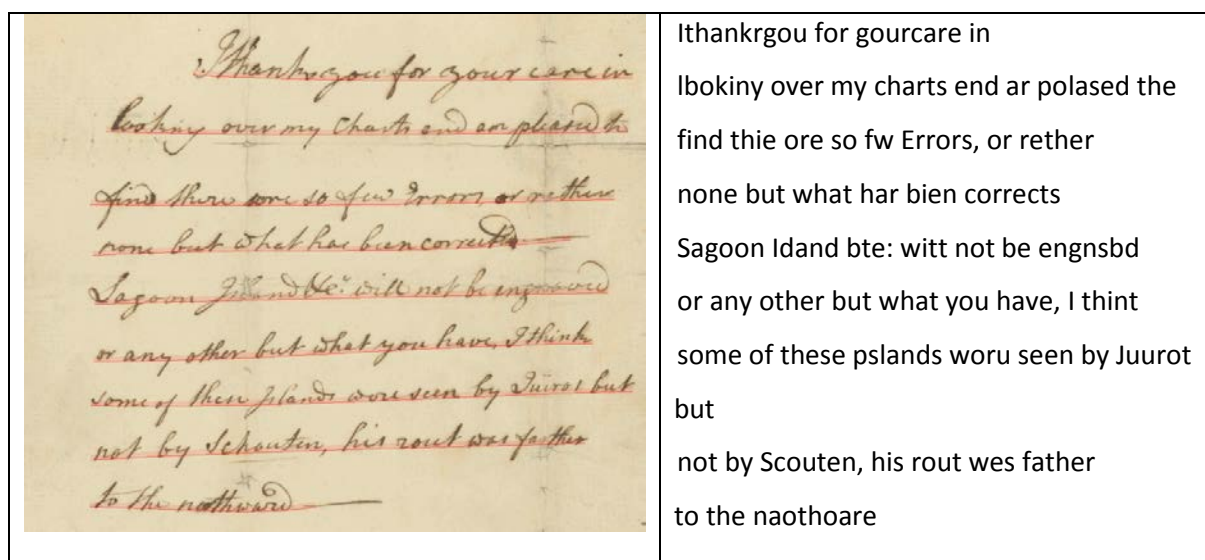 I thank you for your care in
looking over my Charts and am pleased to
find there are so few Errors, or rather
none but what has been corrected
Lagoon Island &c. will not be engraved
or any other but what you have, I think
some of these Islands were seen by Quiros but
not by Schouten, his rout was farther
to the northward
Ithankrgou for gourcare in
lbokiny over my charts end ar polased the
find thie ore so fw Errors, or rether
none but what har bien corrects
Sagoon Idand bte: witt not be engnsbd
or any other but what you have, I thint
some of these pslands woru seen by Juurot
but
not by Scouten, his rout wes father
to the naothoare